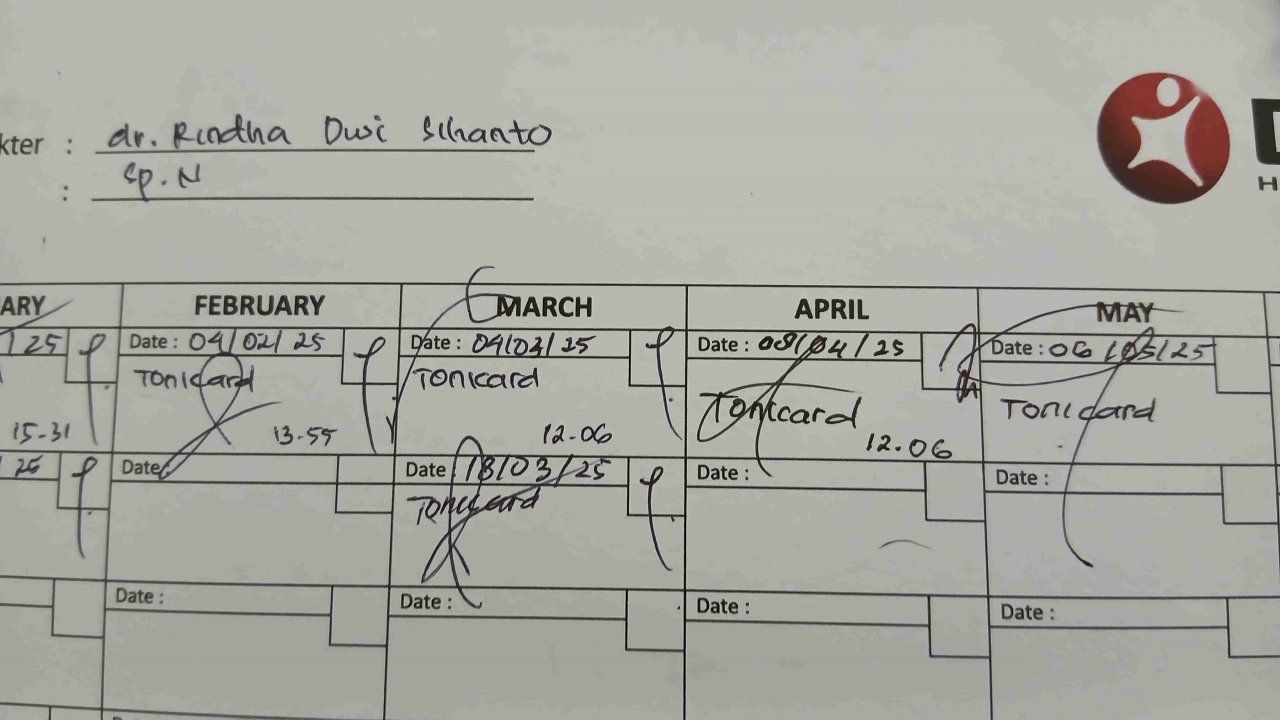 kter : dr. Rindha Dwi Sihanto
: Sp. N
D
H
ARY FEBRUARY MARCH APRIL MAY
/ 25 Date : 04/02/25 Date : 04/03/25 Date : 08/04/25 Date : 06/05/25
Tonicard Tonicard Tonicard Tonicard
15-31 13-55 12-06 12.06
25 Date Date 18/03/25 Date : Date :
Tonicard
Date : Date : Date : Date :